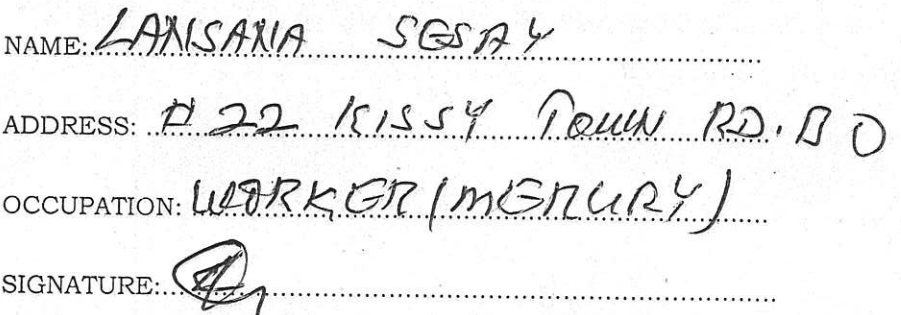 NAME: LANSANA SESAY
ADDRESS: # 22 KISSY TOWN RD. BO
OCCUPATION: WORKER (MERCURY)
SIGNATURE: